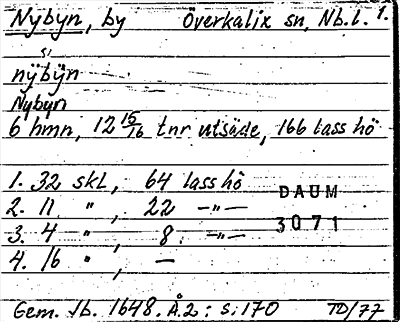 Nybyn, by Överkalix sn, Nb.l. 1.
nybyn
Nybyn
6 hmn, 12 15/16 tnr utsäde, 166 lass hö
1. 32 skl, 64 lass hö
DAUM
2. 11 " , 22 —"—
3. 4 " , 8. —"—
3071
4. 16 " , —
Gem. Jb. 1648. Å.2: s. 170 TD/77